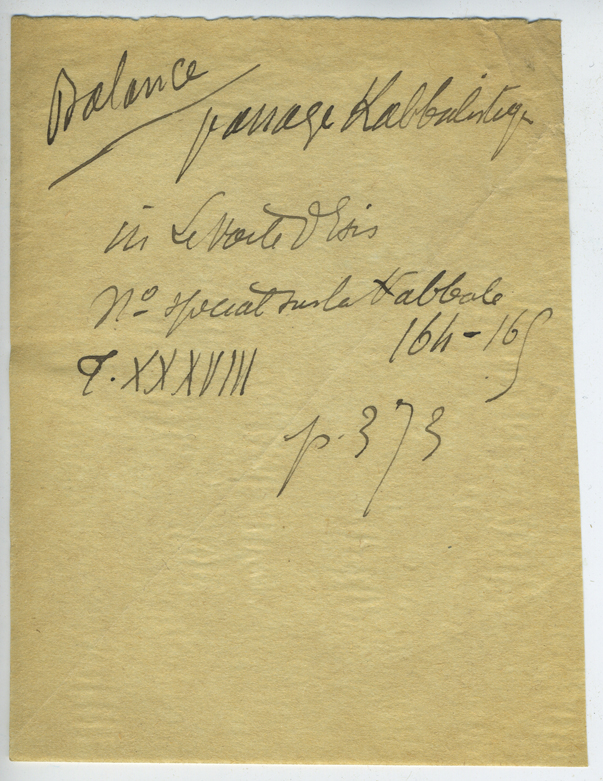 Balance
passage Kabbalistiq
in Le Voile d'Isis
Nº special sur la Kabbale
164-165
T. XXXVIII
p. 373